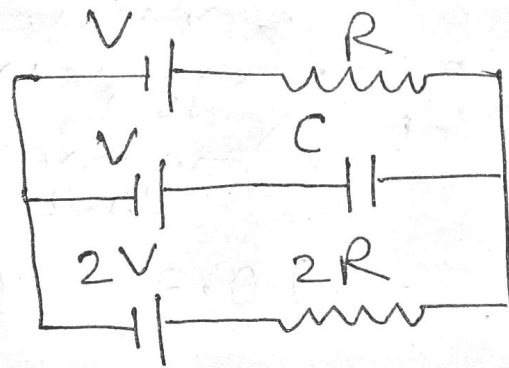 V R
V C
2V 2R